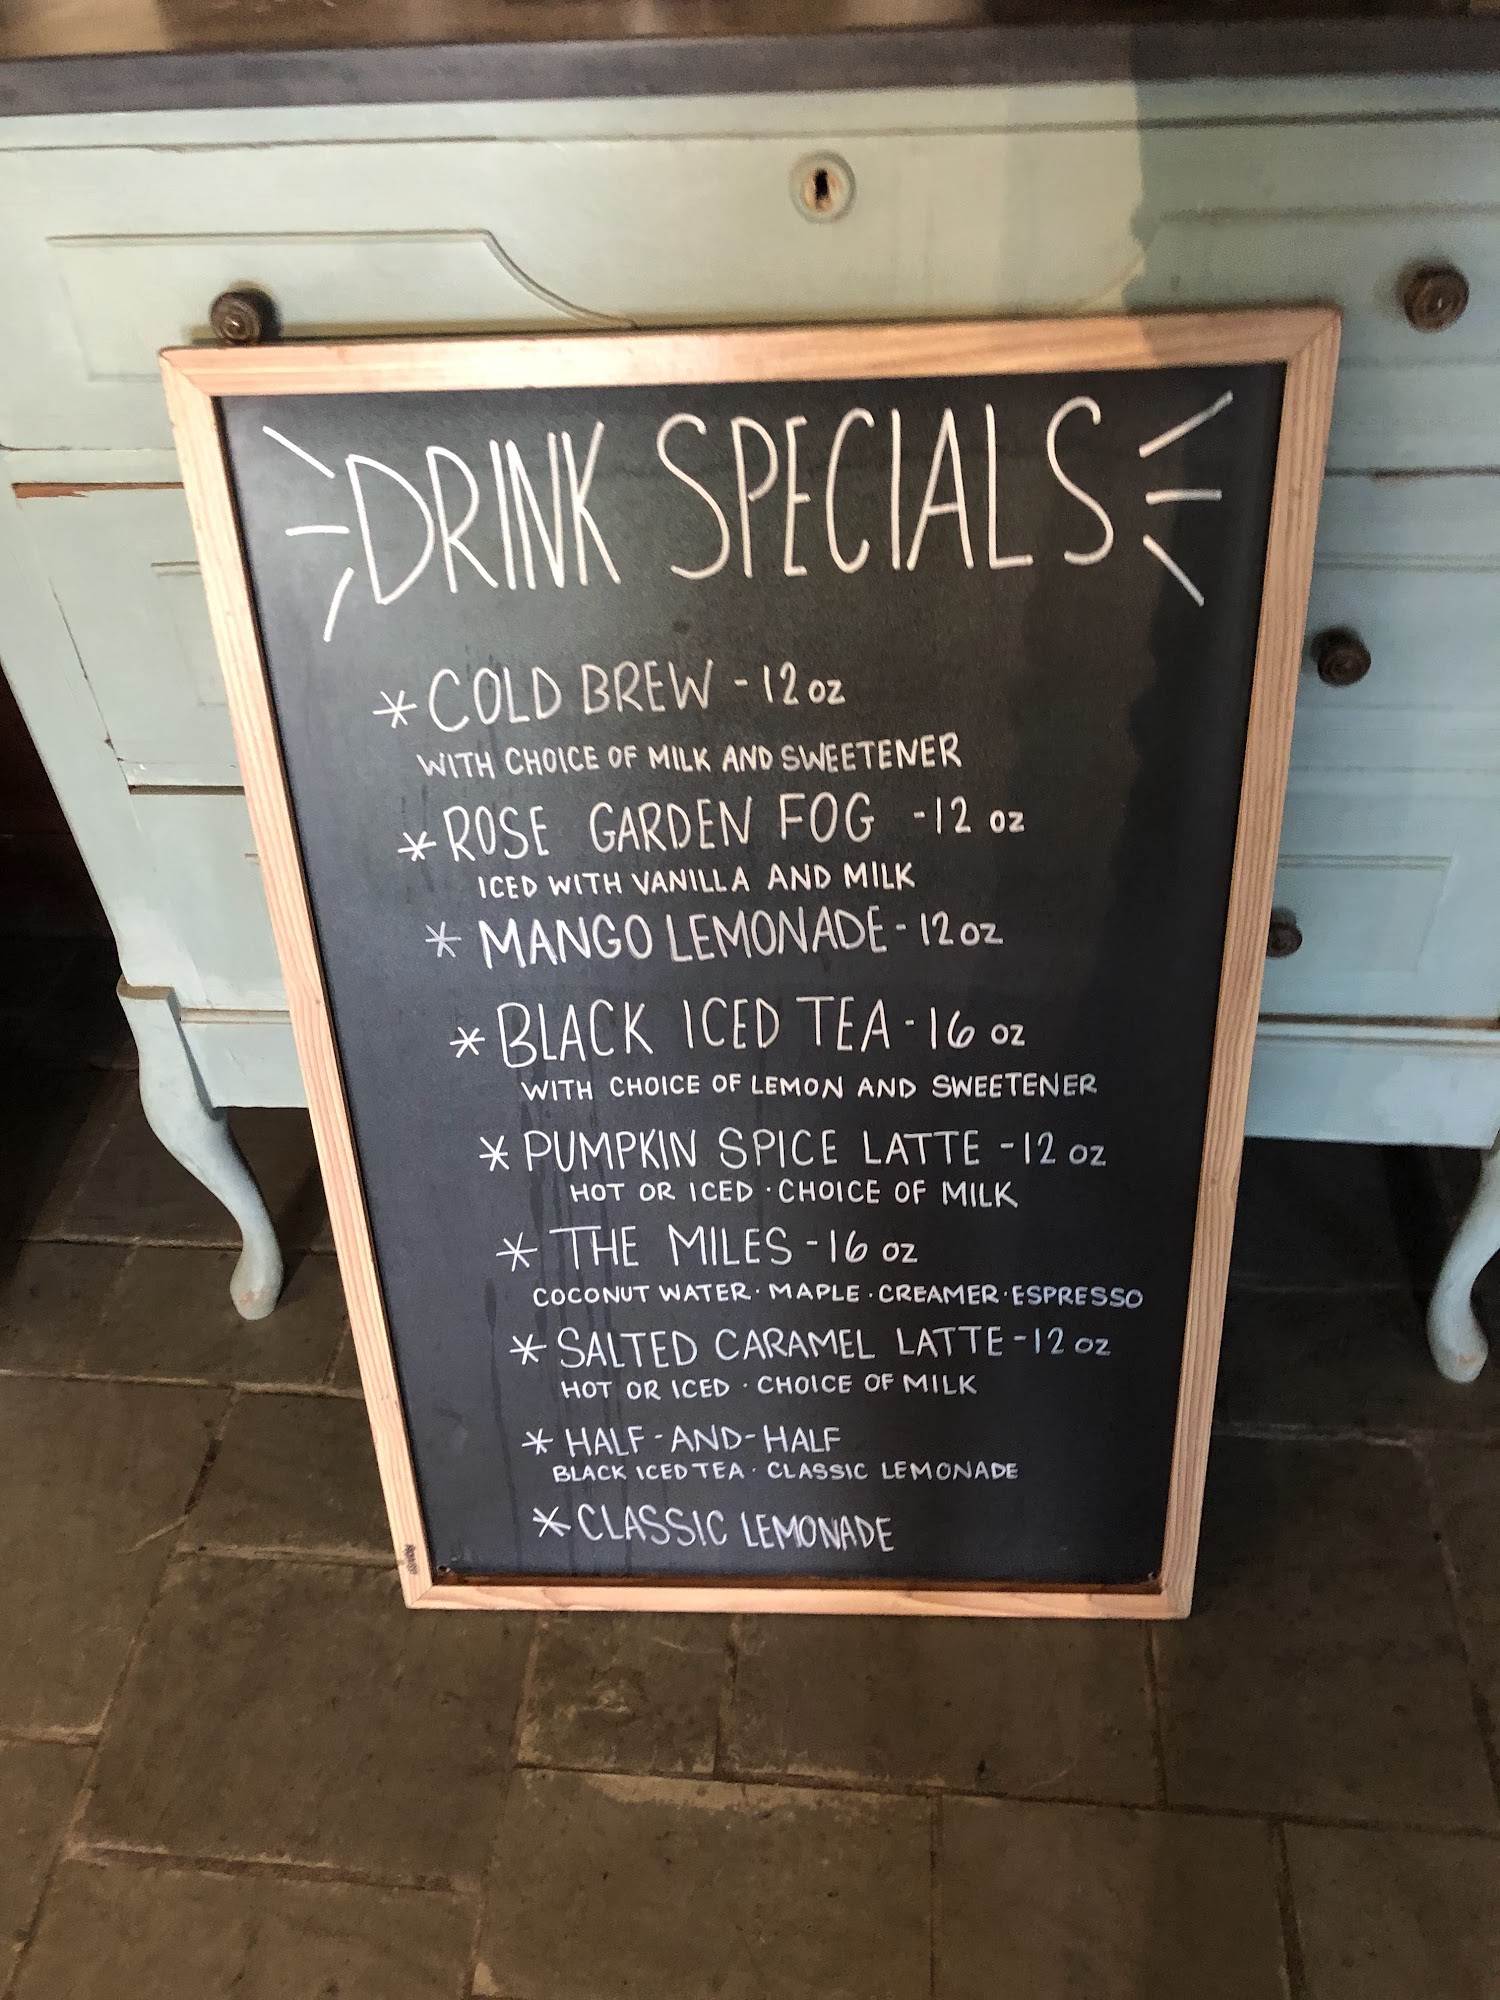 DRINK SPECIALS
* COLD BREW - 12 oz
WITH CHOICE OF MILK AND SWEETENER
* ROSE GARDEN FOG - 12 oz
ICED WITH VANILLA AND MILK
* MANGO LEMONADE - 12 oz
* BLACK ICED TEA - 16 oz
WITH CHOICE OF LEMON AND SWEETENER
* PUMPKIN SPICE LATTE - 12 oz
HOT OR ICED · CHOICE OF MILK
* THE MILES - 16 oz
COCONUT WATER · MAPLE · CREAMER · ESPRESSO
* SALTED CARAMEL LATTE - 12 oz
HOT OR ICED · CHOICE OF MILK
* HALF-AND-HALF
BLACK ICED TEA · CLASSIC LEMONADE
* CLASSIC LEMONADE